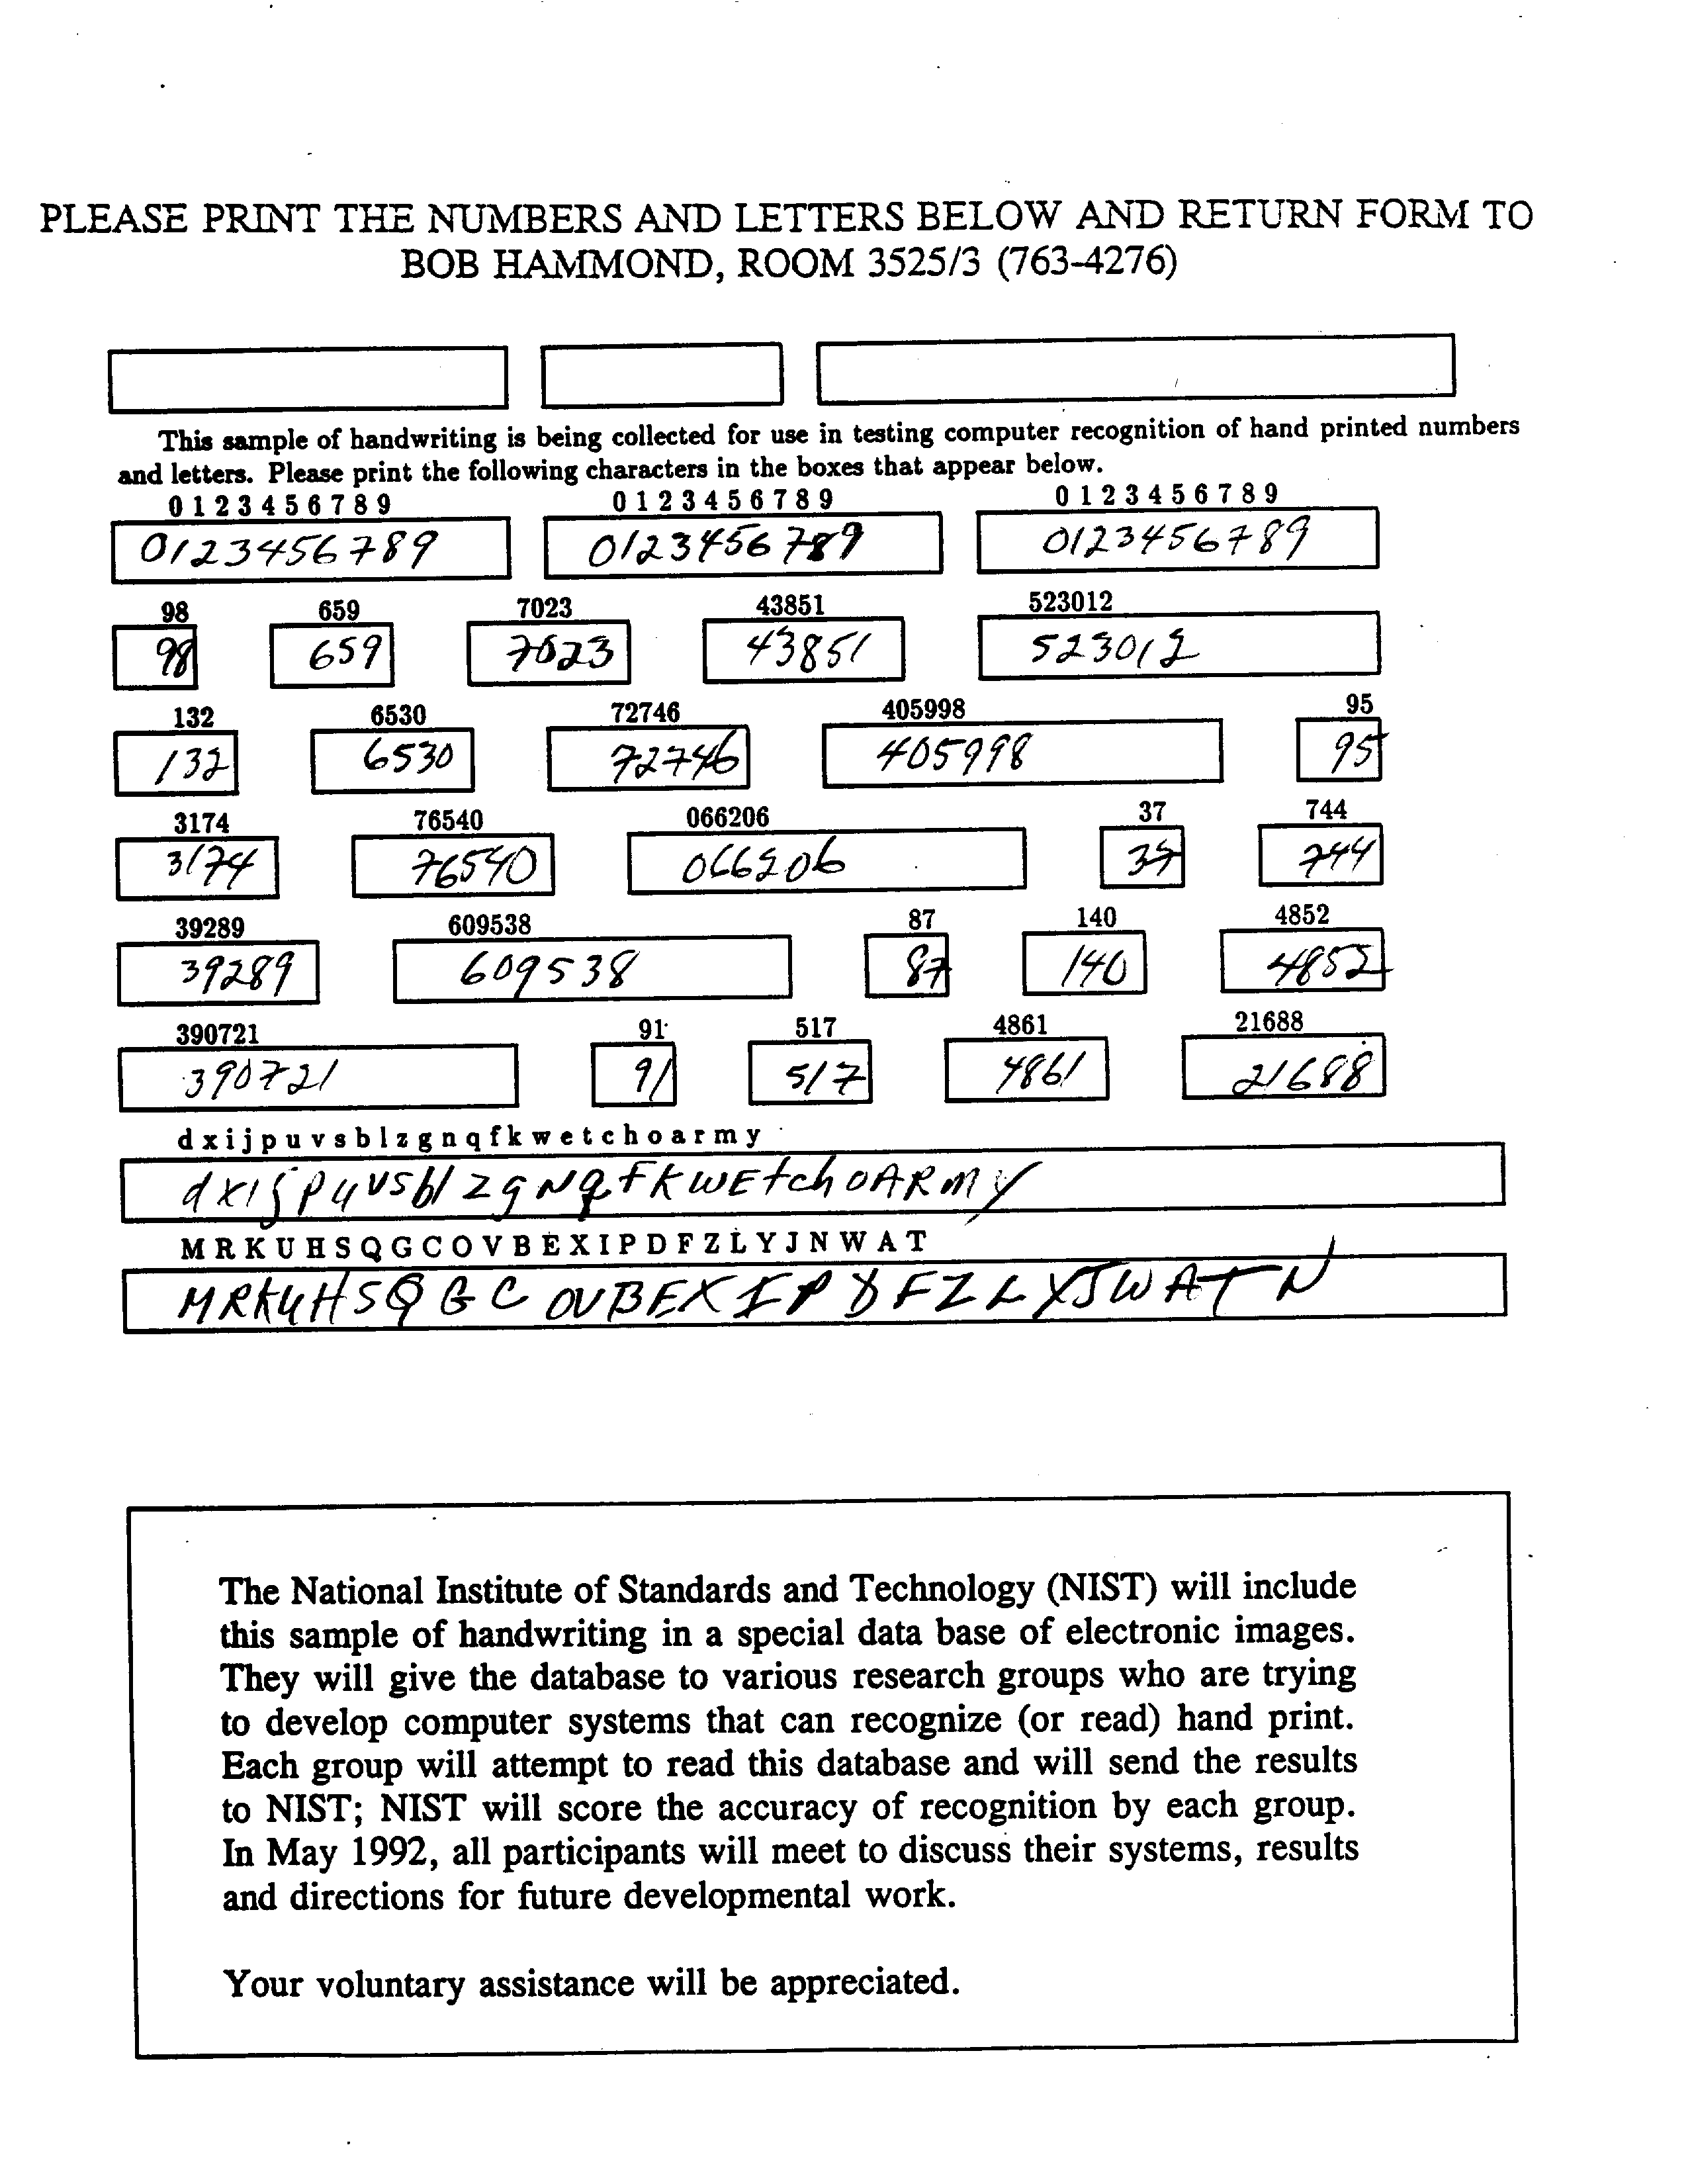 PLEASE PRINT THE NUMBERS AND LETTERS BELOW AND RETURN FORM TO
BOB HAMMOND, ROOM 3525/3 (763-4276)
This sample of handwriting is being collected for use in testing computer recognition of hand printed numbers
and letters. Please print the following characters in the boxes that appear below.
0 1 2 3 4 5 6 7 8 9 0 1 2 3 4 5 6 7 8 9 0 1 2 3 4 5 6 7 8 9
0123456789 0123456789 0123456789
98 659 7023 43851 523012
98 659 7023 43851 523012
132 6530 72746 405998 95
132 6530 72746 405998 95
3174 76540 066206 37 744
3174 76540 066206 37 744
39289 609538 87 140 4852
39289 609538 87 140 4852
390721 91 517 4861 21688
390721 91 517 4861 21688
d x i j p u v s b l z g n q f k w e t c h o a r m y
dxijpuvsblzgNqfkwEtchoARmy
M R K U H S Q G C O V B E X I P D F Z L Y J N W A T
MRKUHSQGCOVBEXIPDFZLYJWATN
The National Institute of Standards and Technology (NIST) will include
this sample of handwriting in a special data base of electronic images.
They will give the database to various research groups who are trying
to develop computer systems that can recognize (or read) hand print.
Each group will attempt to read this database and will send the results
to NIST; NIST will score the accuracy of recognition by each group.
In May 1992, all participants will meet to discuss their systems, results
and directions for future developmental work.
Your voluntary assistance will be appreciated.